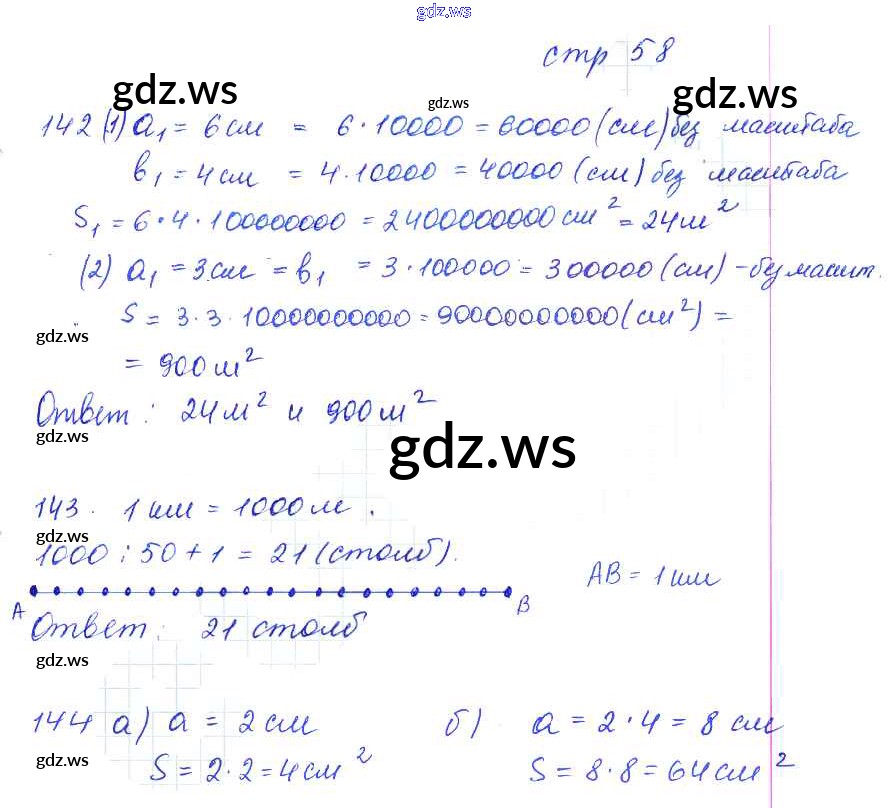 gdz.ws
стр 58
gdz.ws gdz.ws gdz.ws
142 (1) a₁ = 6 см = 6·10000 = 60000 (см) без масштаба
в₁ = 4 см = 4·10000 = 40000 (см) без масштаба
S₁ = 6·4·100000000 = 2400000000 см² = 24 м²
(2) a₁ = 3 см = в₁ = 3·100000 = 300000 (см) - без масшт.
S = 3·3·10000000000 = 90000000000 (см²) =
gdz.ws
= 900 м²
Ответ: 24 м² и 900 м²
gdz.ws
gdz.ws
143. 1 км = 1000 м.
gdz.ws
1000 : 50 + 1 = 21 (столб).
AB = 1 км
A B
Ответ: 21 столб
gdz.ws
144 а) a = 2 см б) a = 2·4 = 8 см
gdz.ws
S = 2·2 = 4 см² S = 8·8 = 64 см²